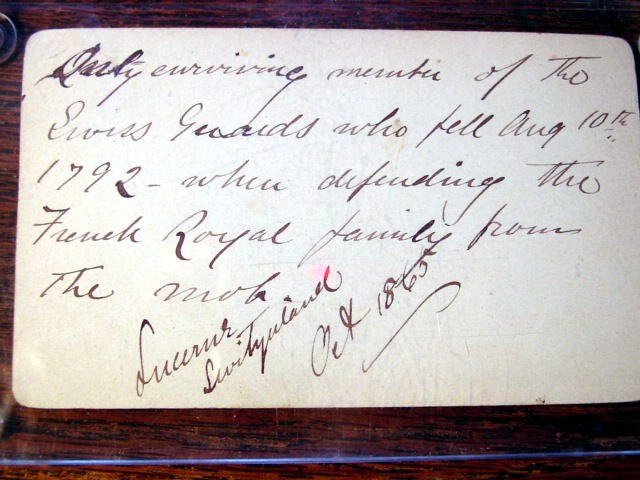 Only surviving member of the
Swiss Guards who fell Aug 10th
1792 - when defending the
French Royal family from
the mob
Lucerne
Switzerland
Oct 1865